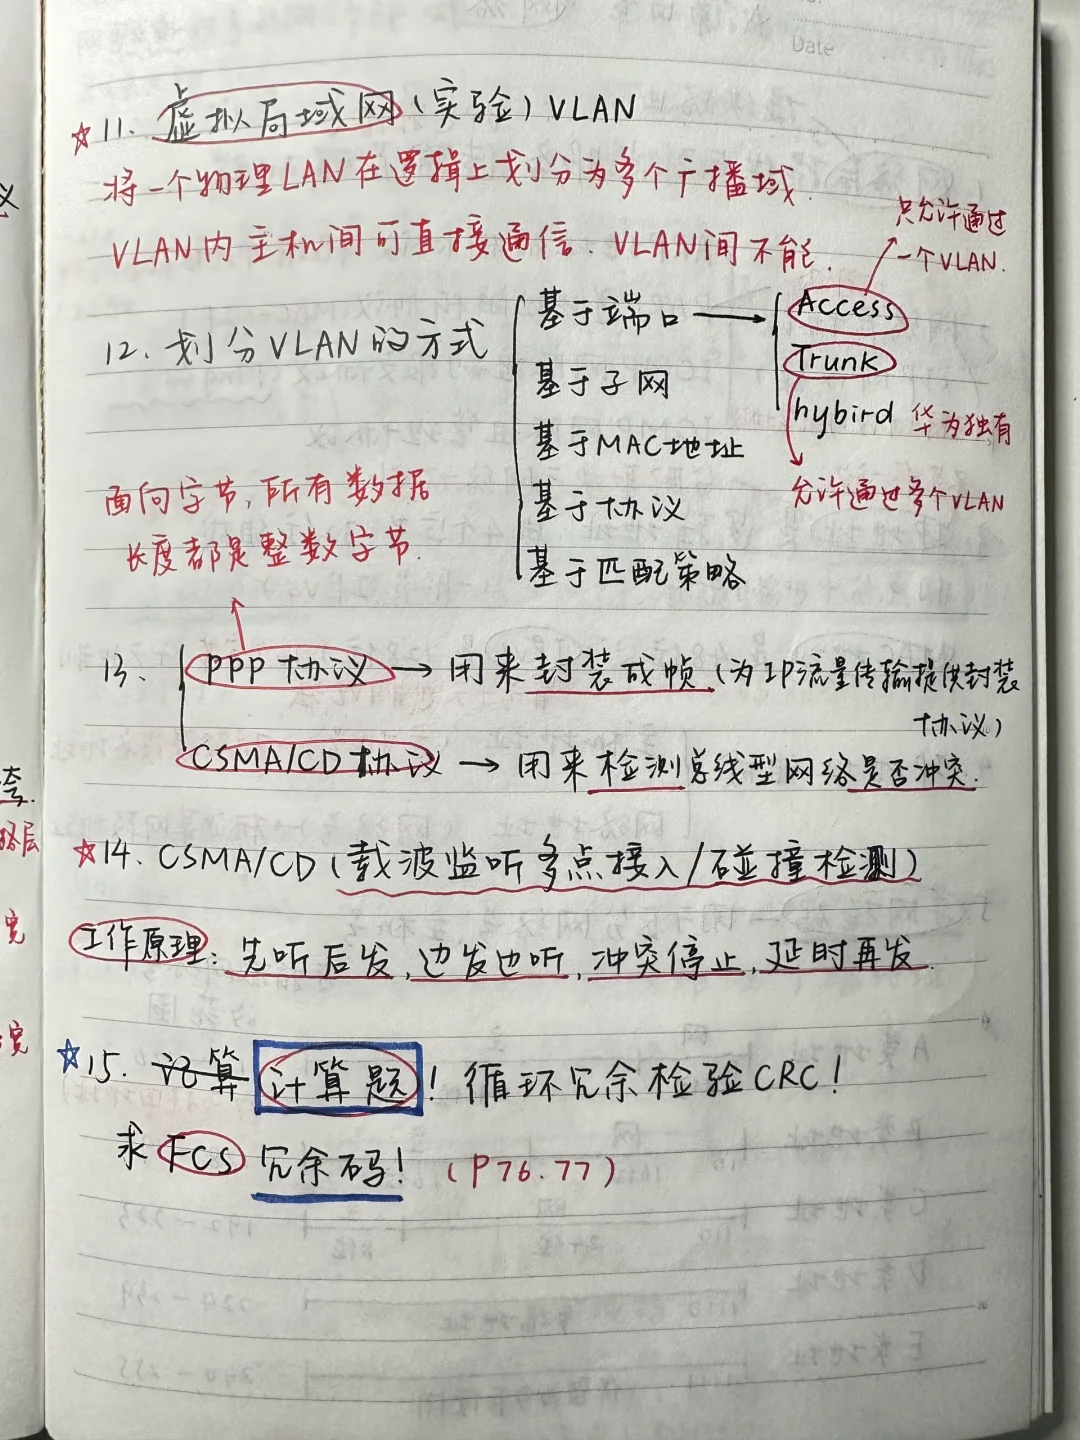 Date
☆11. 虚拟局域网(实验)VLAN
将一个物理LAN在逻辑上划分为多个广播域.
VLAN内主机间可直接通信. VLAN间不能.
只允许通过
一个VLAN.
12. 划分VLAN的方式
基于端口 → Access
基于子网
Trunk
基于MAC地址
hybird 华为独有
基于协议
允许通过多个VLAN
基于匹配策略
面向字节,所有数据
长度都是整数字节.
13. PPP协议 → 用来封装成帧(为IP流量传输提供封装
协议)
CSMA/CD协议 → 用来检测总线型网络是否冲突.
☆14. CSMA/CD(载波监听多点接入/碰撞检测)
工作原理: 先听后发,边发边听,冲突停止,延时再发.
☆15. 计算题! 循环冗余检验CRC!
求FCS冗余码! (P76.77)